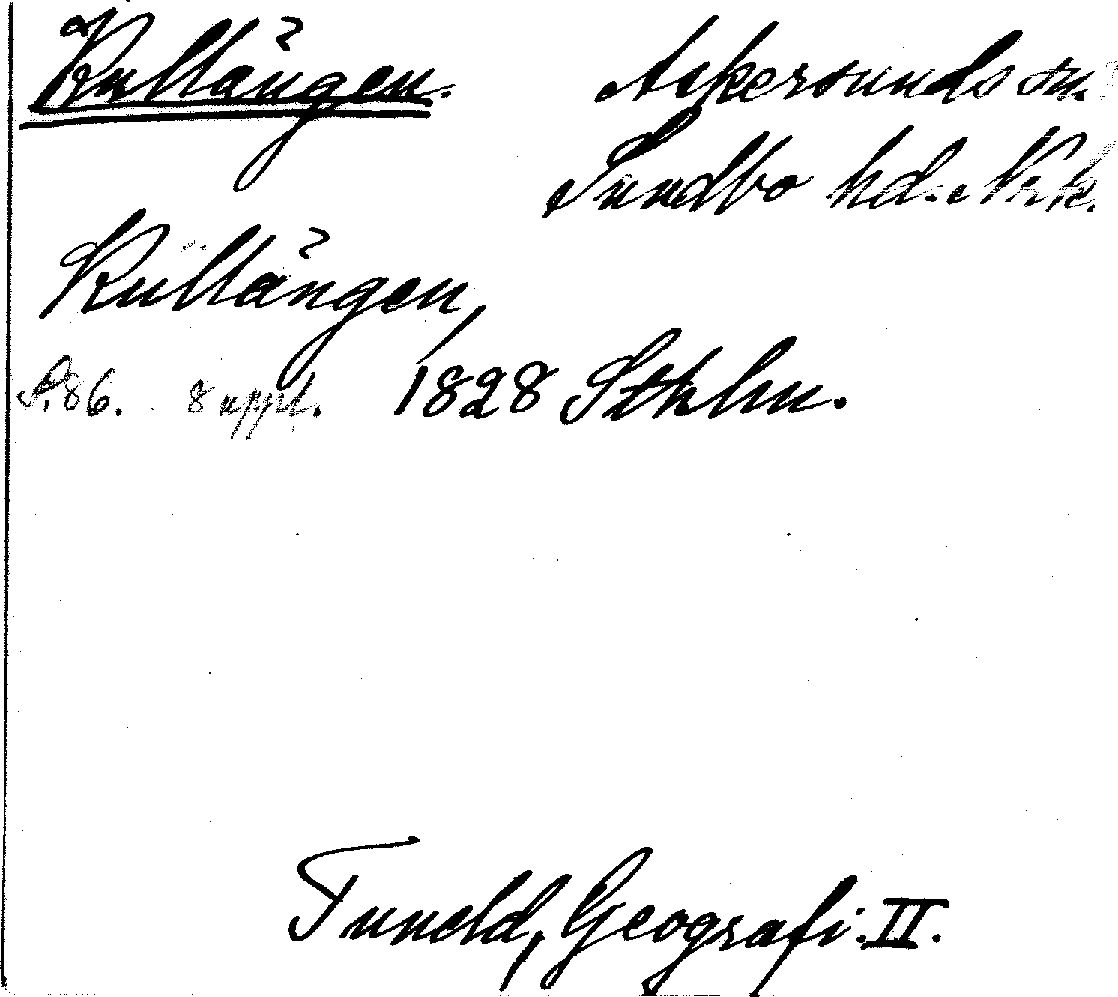 Kullängen. Askersunds sn.
Sundbo hd. Nrk.
Kullängen,
S. 86. 8 uppl. 1828 Sthlm.
Tuneld, Geografi. II.